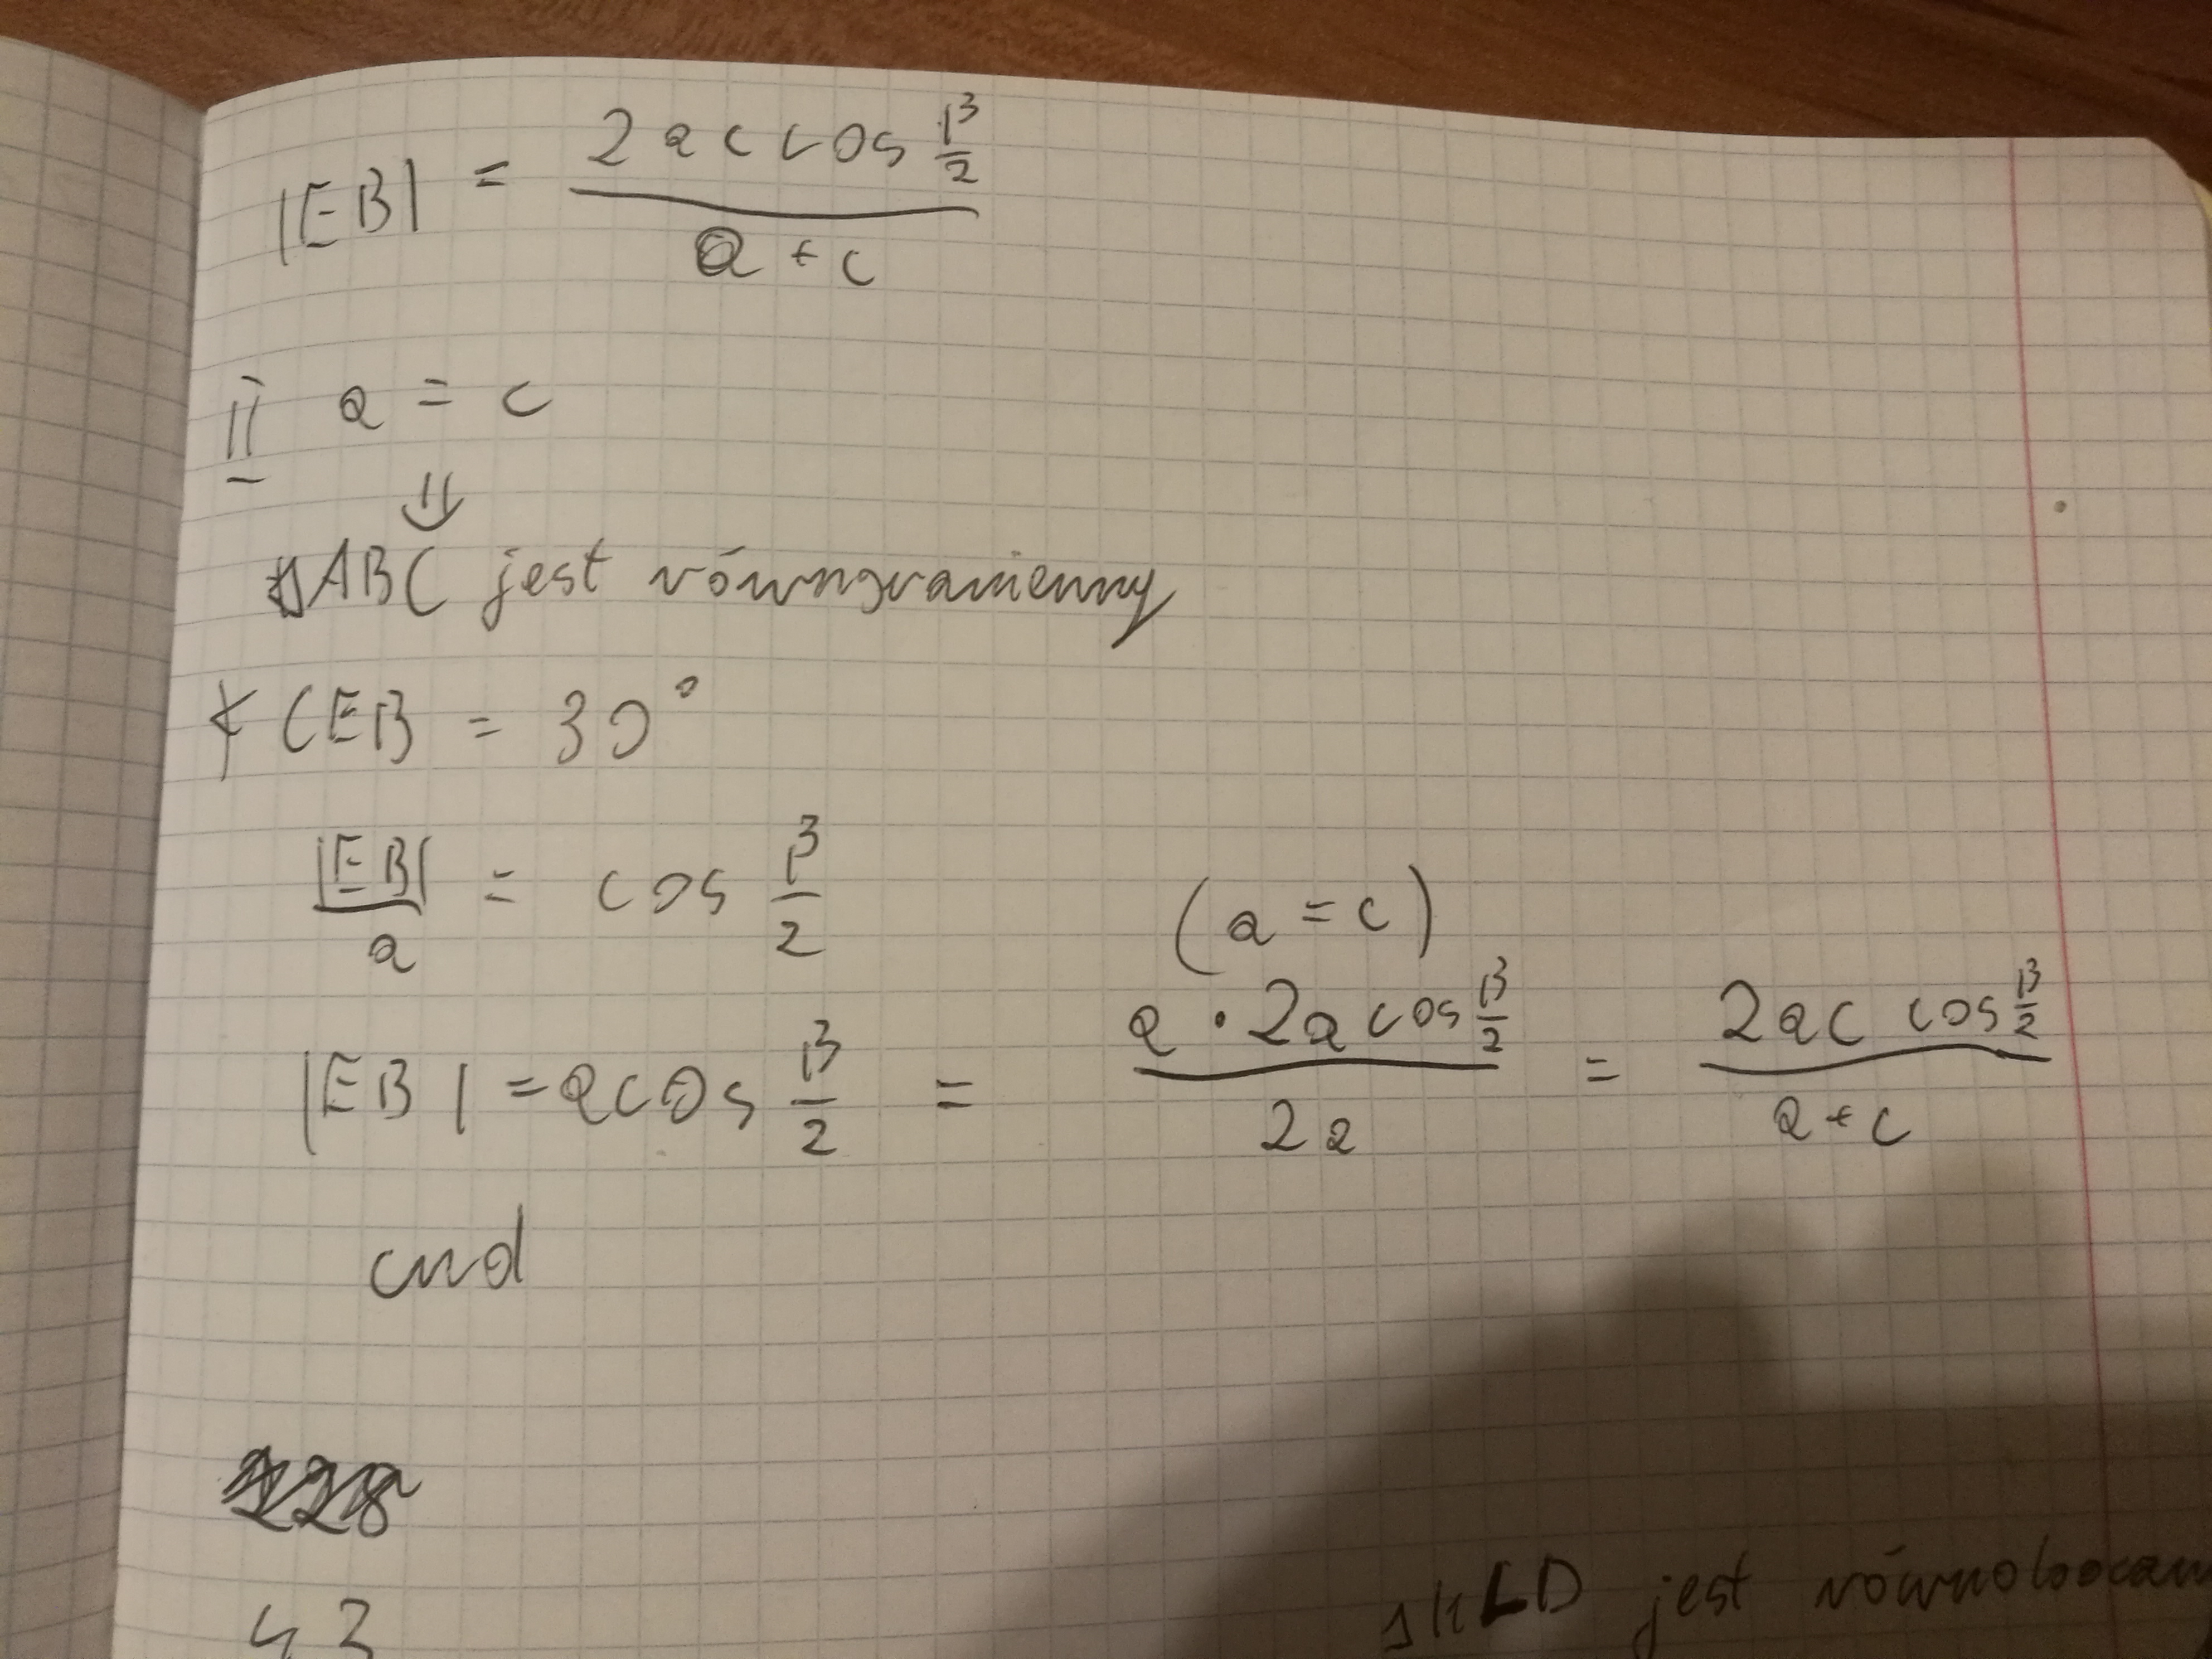 |EB| = \frac{2ac cos \frac{β}{2}}{a + c}
II a = c
⇓
△ABC jest równoramienny
∢ CEB = 30°
\frac{|EB|}{a} = cos \frac{β}{2}
(a = c)
|EB| = a cos \frac{β}{2} = \frac{a · 2a cos \frac{β}{2}}{2a} = \frac{2ac cos \frac{β}{2}}{a + c}
cnd
LD jest